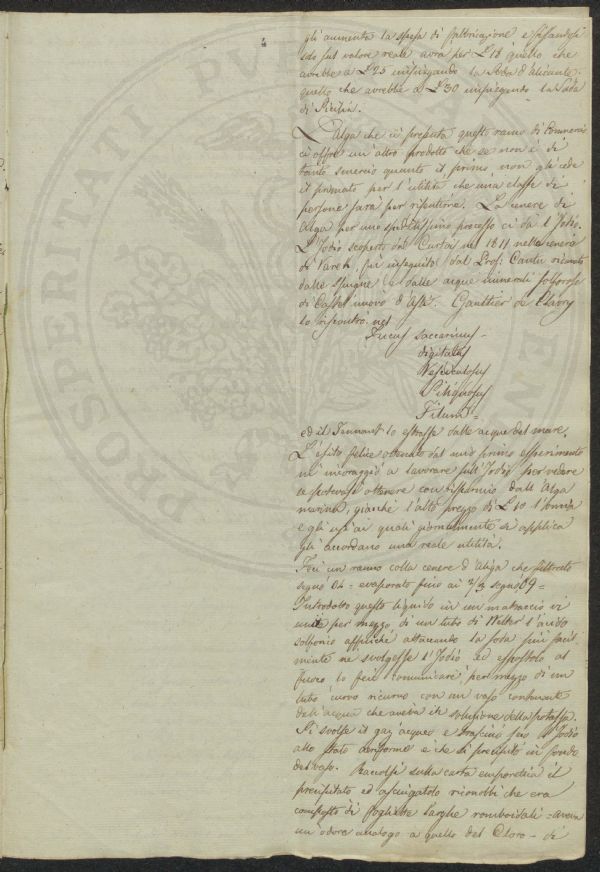 gli aumenta la spesa di fabbricazione e fissandosi
sul valore reale avrà per L 18 quello che
avrebbe a L 25 impiegando la Soda d'Alicante
quello che avrebbe a L 30 impiegando la Soda
di Sicilia.
L'Alga che ci prepara questo ramo di Commercio
ci offre un'altro prodotto che se non è di
tanto smercio quanto il primo, non gli cede
il primato per l'utilità che una classe di
persone sarà per risentirne. La cenere di
Alga per uno speditissimo processo ci dà l'Jodio.
L'Jodio scoperto dal Curtoi nel 1811 nella cenere
di Varek, fù inseguito dal Prof: Cantù ricavato
dalle spugne e dalle acque minerali solforose
di Castel nuovo d'Asti. Gaulthier de Claubry
lo riscontrò nel
Fucus saccarinus
digitatus
Vesiculosus
Siliquosus
Filum =
ed il Tennant lo estrasse dalle acque del mare.
L'esito felice ottenuto dal mio primo esperimento
m'incoraggiò a lavorare sull'Jodio per vedere
se potevasi ottenere con risparmio dall'Alga
marina, giacchè l'alto prezzo di L 10 l'oncia
e gli usi ai quali giornalmente si applica
gli accordano una reale utilità.
Feci un ranno colla cenere d'Aliga che filtrato
segnò 04 = evaporato fino ai 2/3 segnò 09 =
Introdotto questo liquido in un matraccio vi
unii per mezzo di un tubo di Welter l'acido
solforico affinchè attaccando la soda più facil-
mente ne svolgesse l'Jodio ed espostolo al
fuoco lo feci comunicare per mezzo di un
tubo curvo ricurvo con un vaso contenente
dell'acqua che aveva in soluzione della potassa.
Si svolse il gaz acqueo e trascinò seco l'Jodio
allo stato aeriforme e che si precipitò in fondo
del vaso. Raccolsi sulla carta emporetica il
precipitato ed asciugatolo riconobbi che era
composto di fogliette larghe romboidali = aveva
un odore analogo a quello del Cloro = di